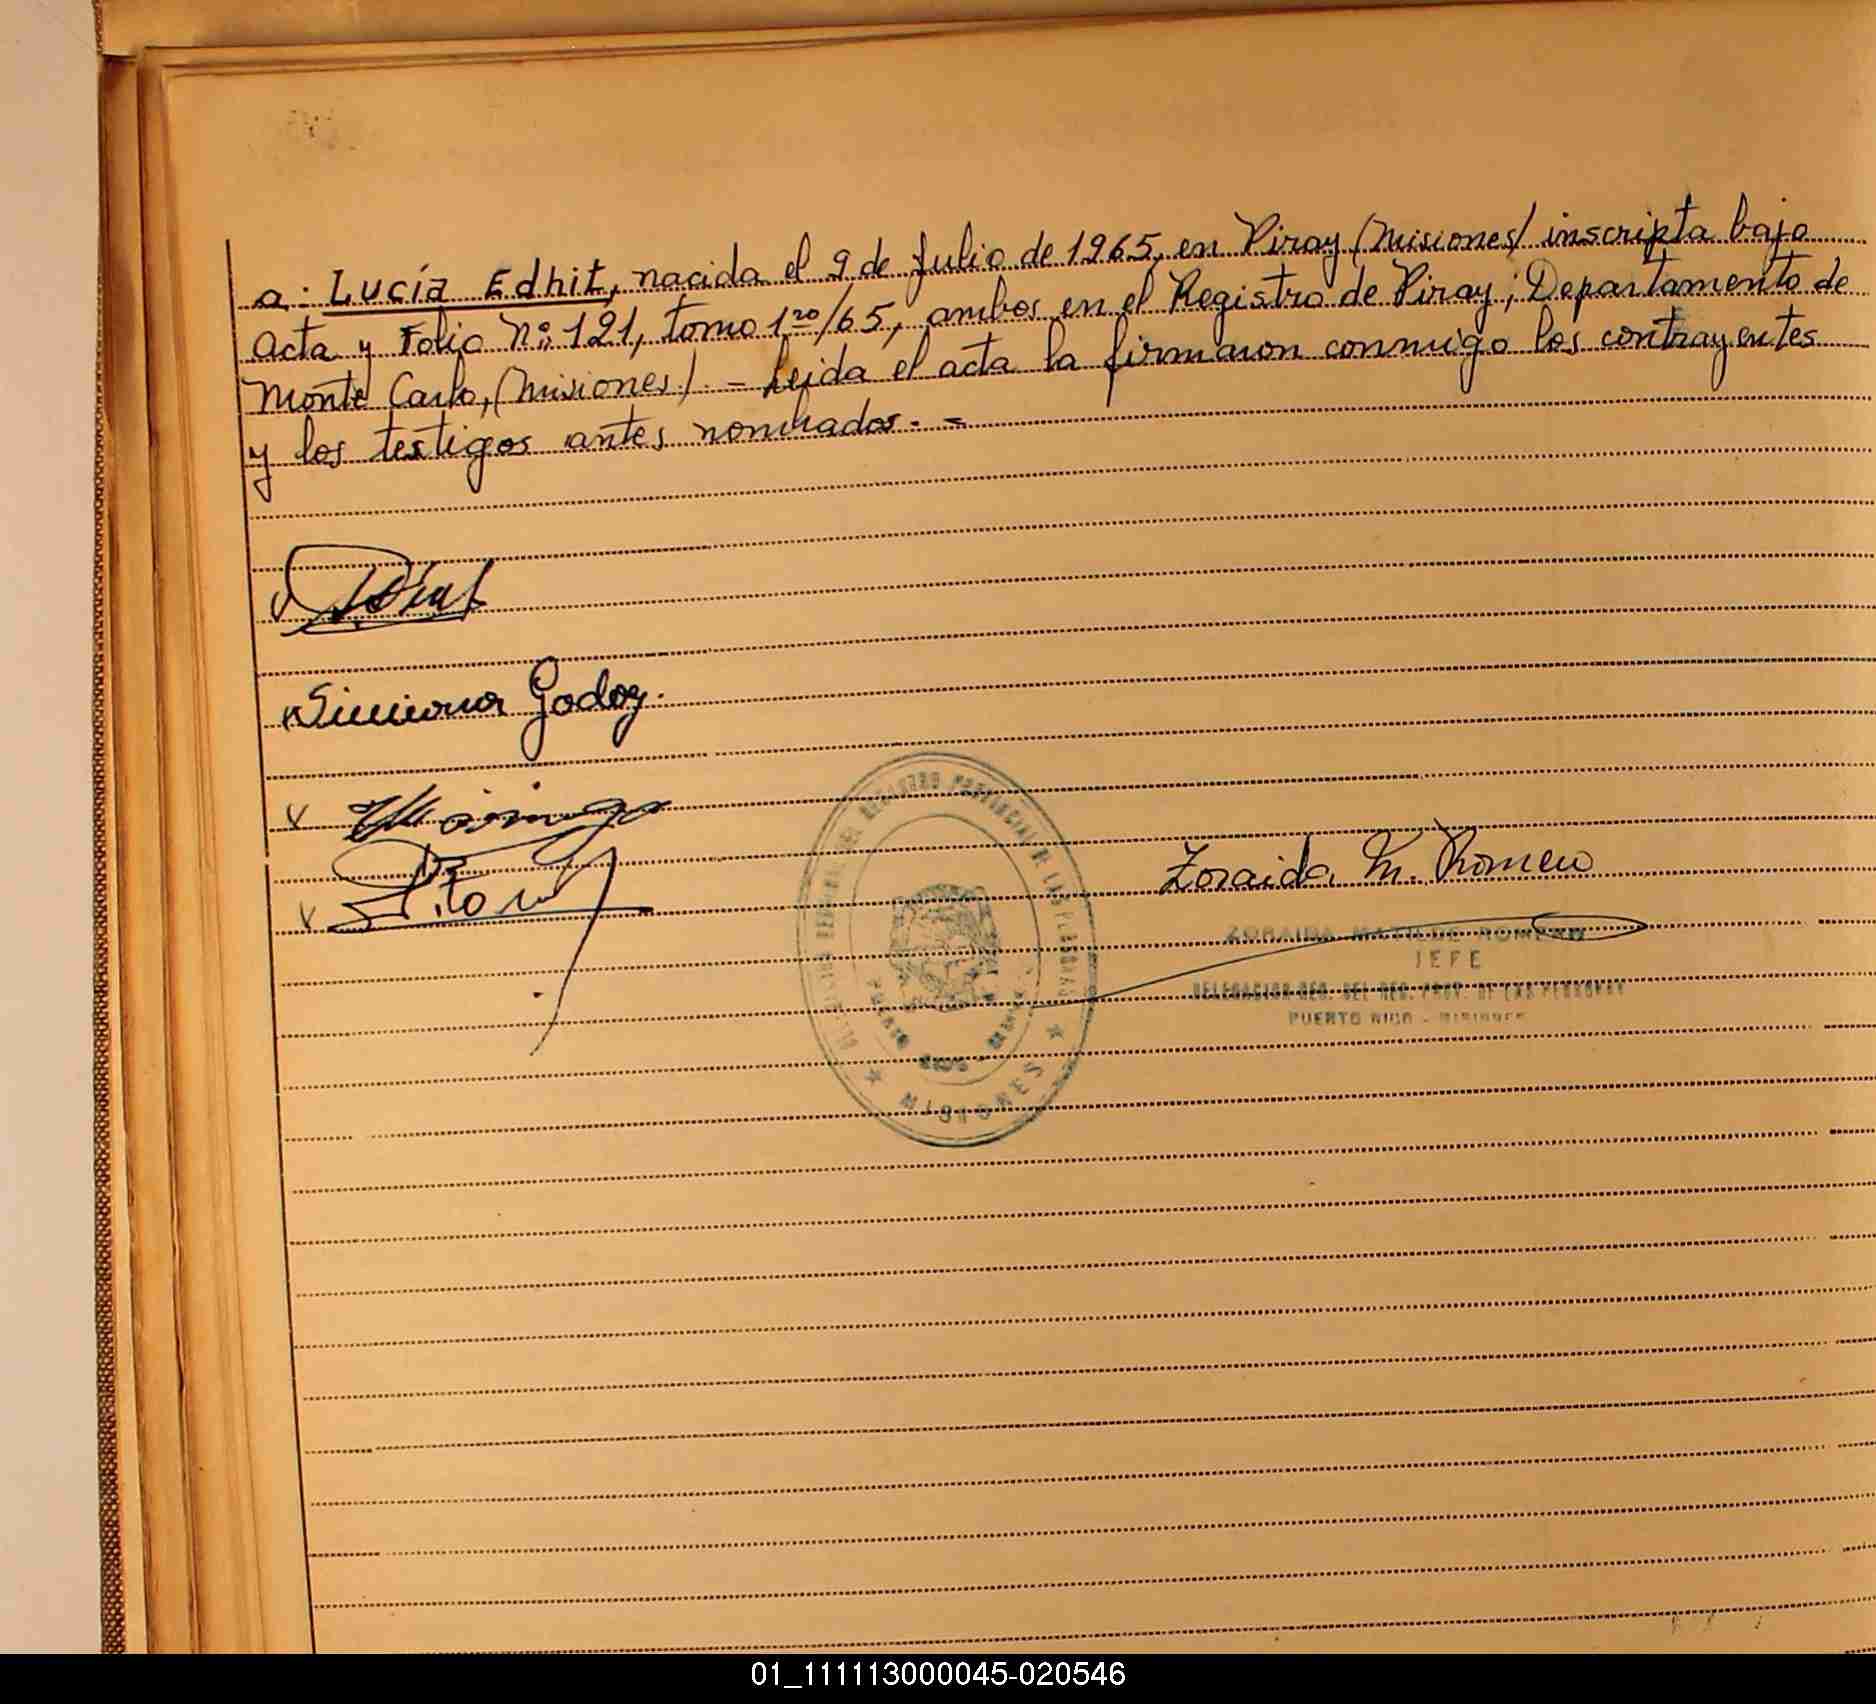 a: Lucía Edhit, nacida el 9 de Julio de 1965, en Piray (Misiones) inscripta bajo
acta y Folio Nº 121, tomo 1ro/65, ambos en el Registro de Piray; Departamento de
Monte Carlo, (Misiones). - Leida el acta la firmaron conmigo los contrayentes
y los testigos antes nombrados. =
Simiona Godoy.
Zoraida M. Romero
ZORAIDA MATILDE ROMERO
JEFE
DELEGACION REG. DEL REG. PROV. DE LAS PERSONAS
PUERTO RICO - MISIONES
REGISTRO PROVINCIAL DE LAS PERSONAS
PUERTO RICO
MISIONES
01_111113000045-020546